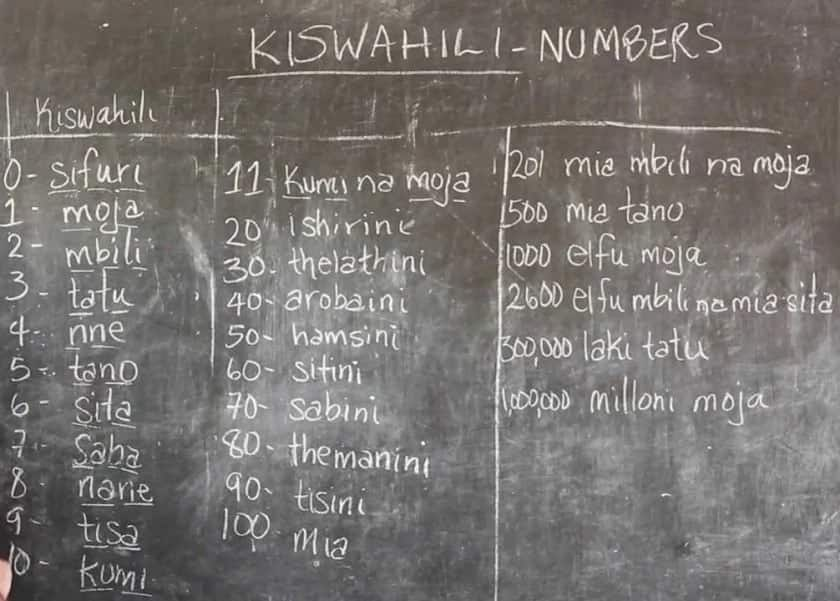 KISWAHILI - NUMBERS
Kiswahili
0 - sifuri
1 - moja
2 - mbili
3 - tatu
4 - nne
5 - tano
6 - sita
7 - saba
8 - nane
9 - tisa
10 - kumi
11 - Kumi na moja
20 ishirini
30 - thelathini
40 - arobaini
50 - hamsini
60 - sitini
70 - sabini
80 - themanini
90 - tisini
100 - mia
201 mia mbili na moja
500 mia tano
1000 elfu moja
2600 elfu mbili na mia sita
300,000 laki tatu
1,000,000 milloni moja